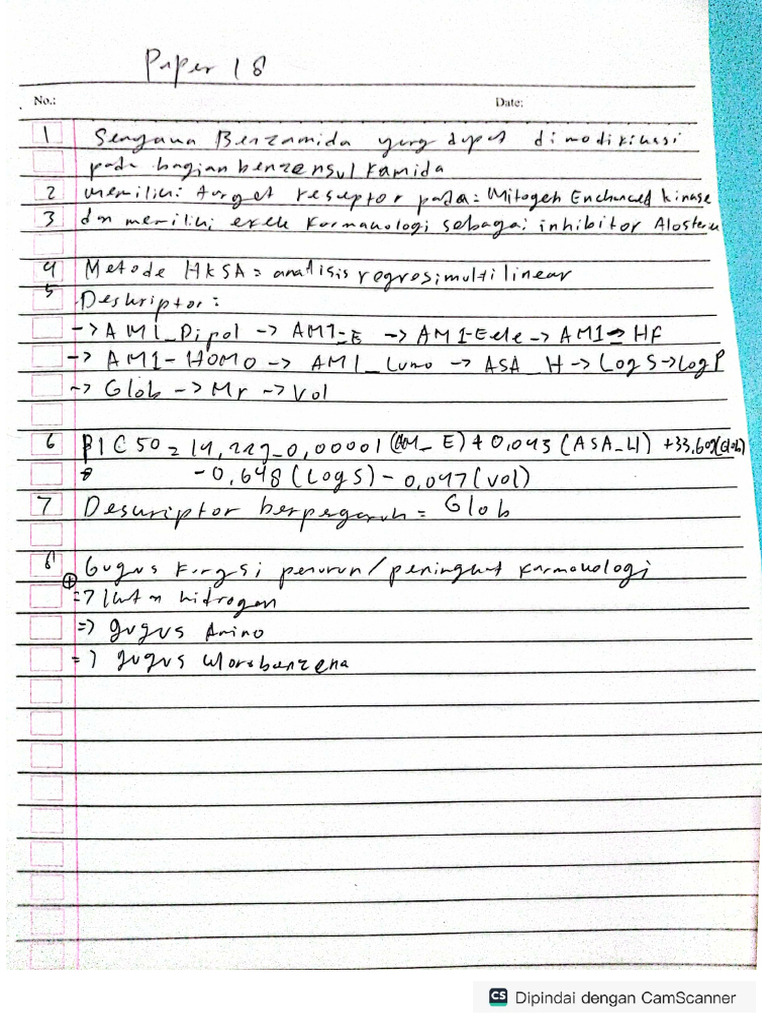 Paper 18
No.: Date:
1 Senyawa Benzamida yang dapat dimodifikasi
pada bagian benzensulfamida
2 memiliki target reseptor pada: Mitogen Enchanced kinase
3 dan memiliki efek farmakologi sebagai inhibitor Alosterik
4 Metode HKSA = analisis regresi multilinear
5 Deskriptor :
-> AM1_Dipol -> AM1-E -> AM1-Eele -> AM1-HF
-> AM1-HOMO -> AM1_Lumo -> ASA_H -> Log S -> Log P
-> Glob -> Mr -> Vol
6 PIC50 = 14,227_0,00001 (AM_E) + 0,043 (ASA_H) + 33,609(Glob)
-0,648 (Log S) - 0,047 (vol)
7 Descriptor berpegaruh = Glob
8 Gugus fungsi penurun/peningkat farmakologi
+
=> Ikatan hidrogen
=> gugus Amino
=> gugus klorobenzena
CS Dipindai dengan CamScanner